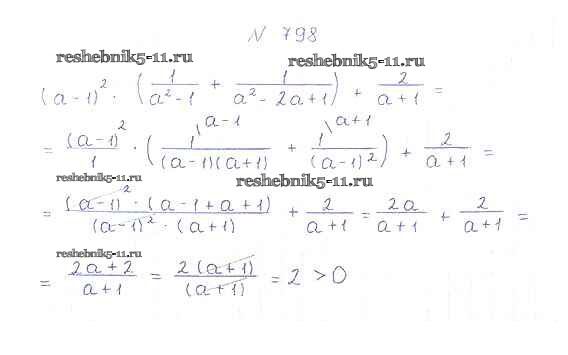 N 798
reshebnik5-11.ru reshebnik5-11.ru
(a-1)² · (1/(a²-1) + 1/(a²-2a+1)) + 2/(a+1) =
= (a-1)²/1 · (1\a-1/((a-1)(a+1)) + 1\a+1/((a-1)²)) + 2/(a+1) =
reshebnik5-11.ru reshebnik5-11.ru
= ((a-1)² · (a-1+a+1))/((a-1)² · (a+1)) + 2/(a+1) = 2a/(a+1) + 2/(a+1) =
reshebnik5-11.ru
= (2a+2)/(a+1) = 2(a+1)/(a+1) = 2 > 0